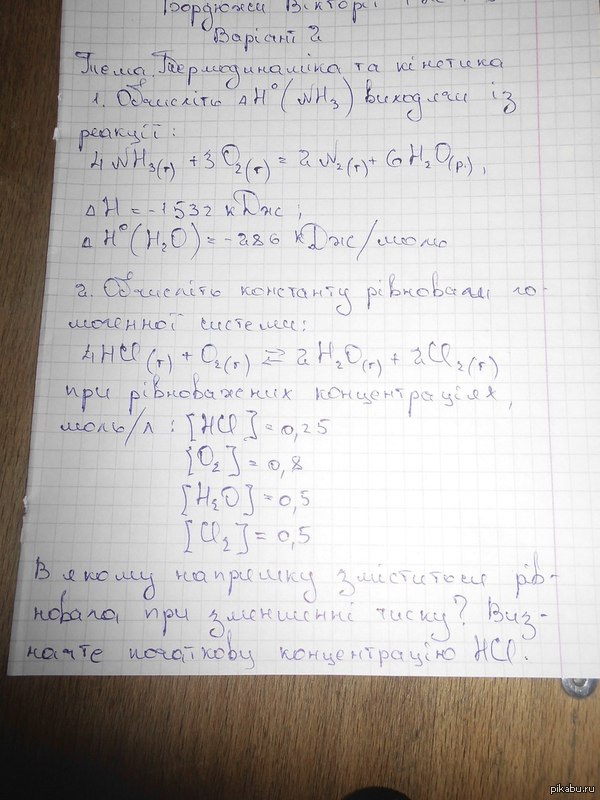 Вікторії
Варіант 2
Тема. Термодинаміка та кінетика
1. Обчисліть ΔH°(NH₃) виходячи із
реакції:
4NH₃(г) + 3O₂(г) = 2N₂(г) + 6H₂O(р.),
ΔH = -1532 кДж;
ΔH°(H₂O) = -286 кДж/моль
2. Обчисліть константу рівноваги го-
могенної системи:
4HCl(г) + O₂(г) ⇄ 2H₂O(г) + 2Cl₂(г)
при рівноважених концентраціях,
моль/л: [HCl] = 0,25
[O₂] = 0,8
[H₂O] = 0,5
[Cl₂] = 0,5
В якому напрямку зміститься рів-
новага при зменшенні тиску? Виз-
начте початкову концентрацію HCl.
pikabu.ru